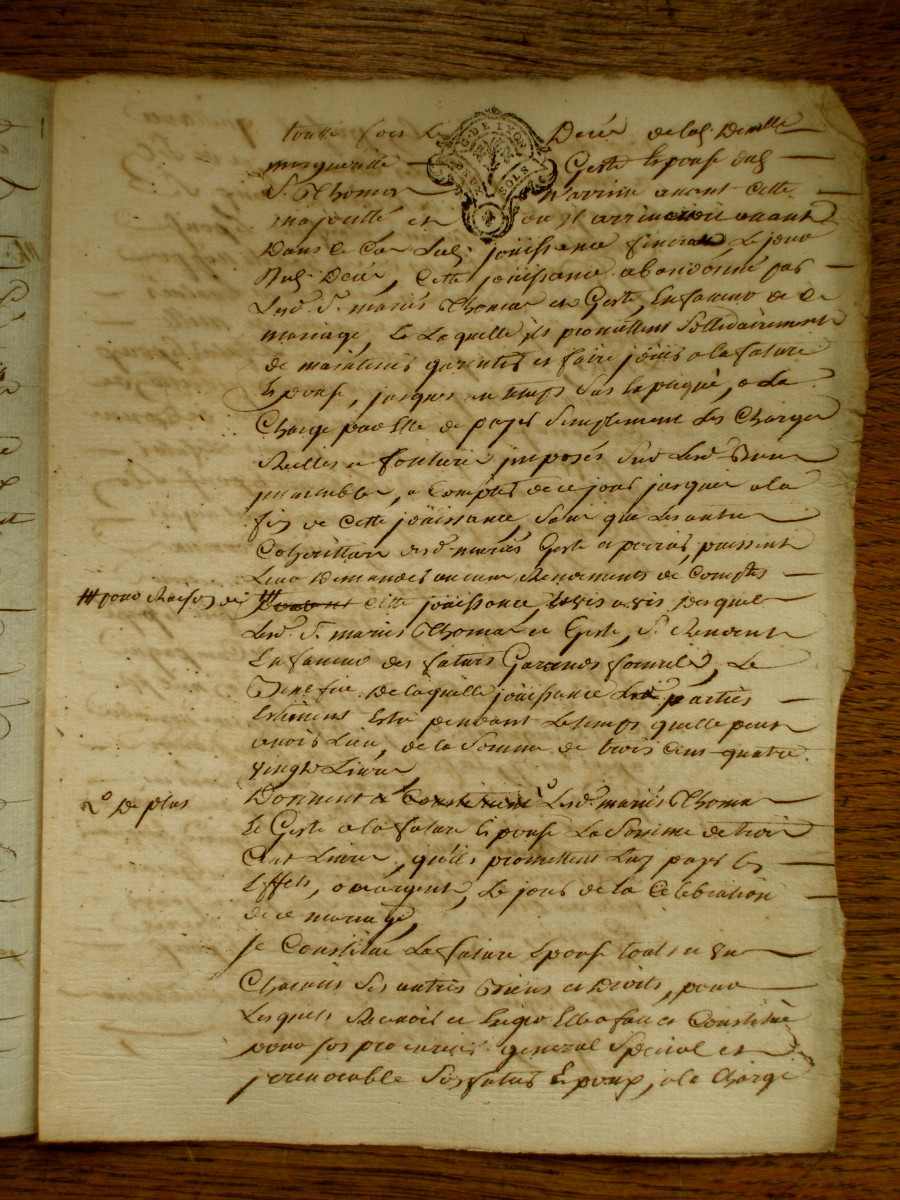 toutte fois le Décés de lad. Demlle
marguerite Geste Epouse dud.
Sr. Thomas n'arrive avant cette
majorité et ou il arriveroit avant
Dans ce Cas lad. joüissance finira le jour
dud. Décés, Cette joüissance abandonné par
Lesd. Sr. mariés Thomas et Geste, En faveur de ce
mariage, Et Laquelle ils promettent Sollidairement
de maintenir garentir et faire joüir a la future
Epouse, jusques au temps Sus Expliqué, a La
Charge par Elle de payer Simplement les Charges
Réelles et fonciere imposés Sur Lesd. Biens
immeubles, a Compter de ce jour jusques a la
fin de Cette joüissance, Sans que les autres
Cohérittiers desd. mariés Geste et perrier, puissent
Leur Demander aucuns Rendements de Comptes
pour Raison de Cette joüissance, vis a vis desquels
Lesd. Sr. mariés Thomas et Geste, S. Rendent
En faveur des futurs Garands formels, Le
Bénéfice de laquelle joüissance Lesd. parties
Estiment Estre pendant Le temps quelle peut
avoir Lieu, de la Somme de trois Cent quatre
vingt Livres
2o De plus Donnent et Constituent Lesd. mariés Thomas
Et Geste a la future Epouse La Somme de trois
Cent Livres, qu'ils promettent Luy payer En
Effets, ou argent, Le jour de la Célébration
de ce mariage,
Se Constitue La future Epouse touts et un
Chacuns Ses autres Biens et Droits, pour
Lesquels Recevoir et Exiger Elle a fait et Constitué
pour son procureur général Special et
irrevocable Son futur Epoux, a la Charge
G. DE LYON
DEUX SOLS